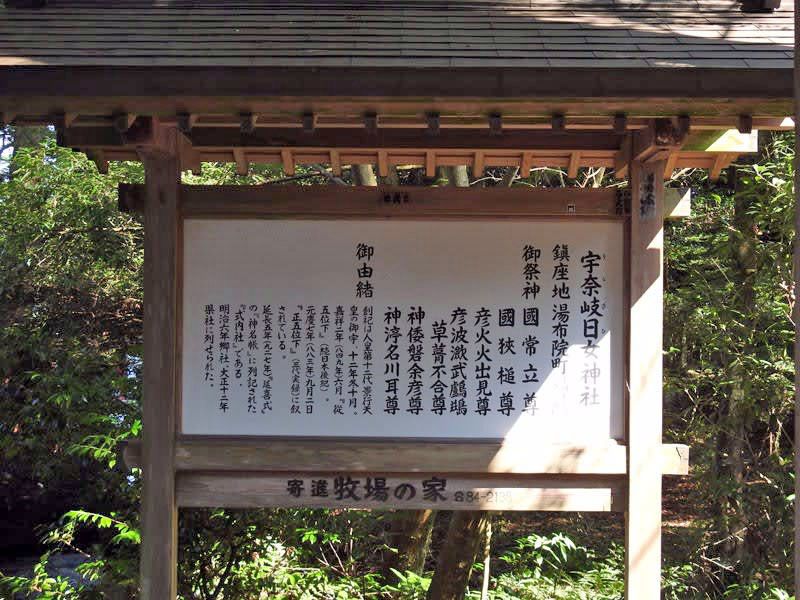 宇奈岐日女神社
うなぎひめ
鎮座地 湯布院町
御祭神 國常立尊
國狭槌尊
彦火火出見尊
彦波瀲武鸕鶿
草葺不合尊
神倭磐余彦尊
神渟名川耳尊
御由緒
創祀は人皇第十二代景行天
皇の御宇、十二年冬十月。
嘉祥二年(八四九年)六月『従
五位下』(続日本後紀)。
元慶七年(八八三年)九月二日
『正五位下』(三代実録)に叙
されている。
延長五年(九二七年)『延喜式』
の『神名帳』に列記された
『式内社』である。
明治六年郷社、大正十二年
県社に列せられた。
寄進 牧場の家 ☎84-2138